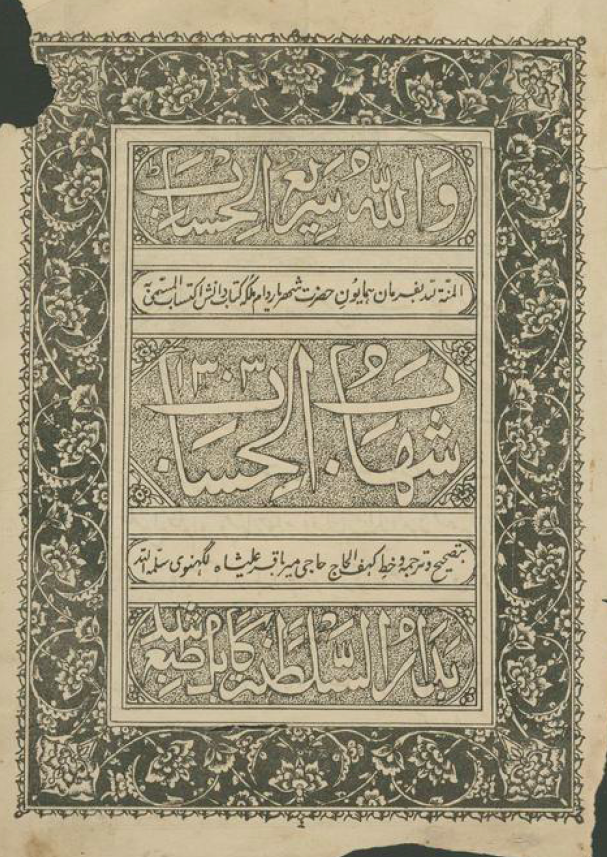 وَاللّٰهُ سَرِيعُ الحِسَاب
المنة لله بفرمان همایون حضرت شهریار دام ملکه کتاب دانش اکتساب المسمی به
شهَابُ الحِسَاب ١٣٠٣
بتصحیح و ترجمه و خط کهف الحاج حاجی میر باقر علیشاه لکهنوی سلمه الله
بدَارُ السَّلطنَة کابل طبع شد